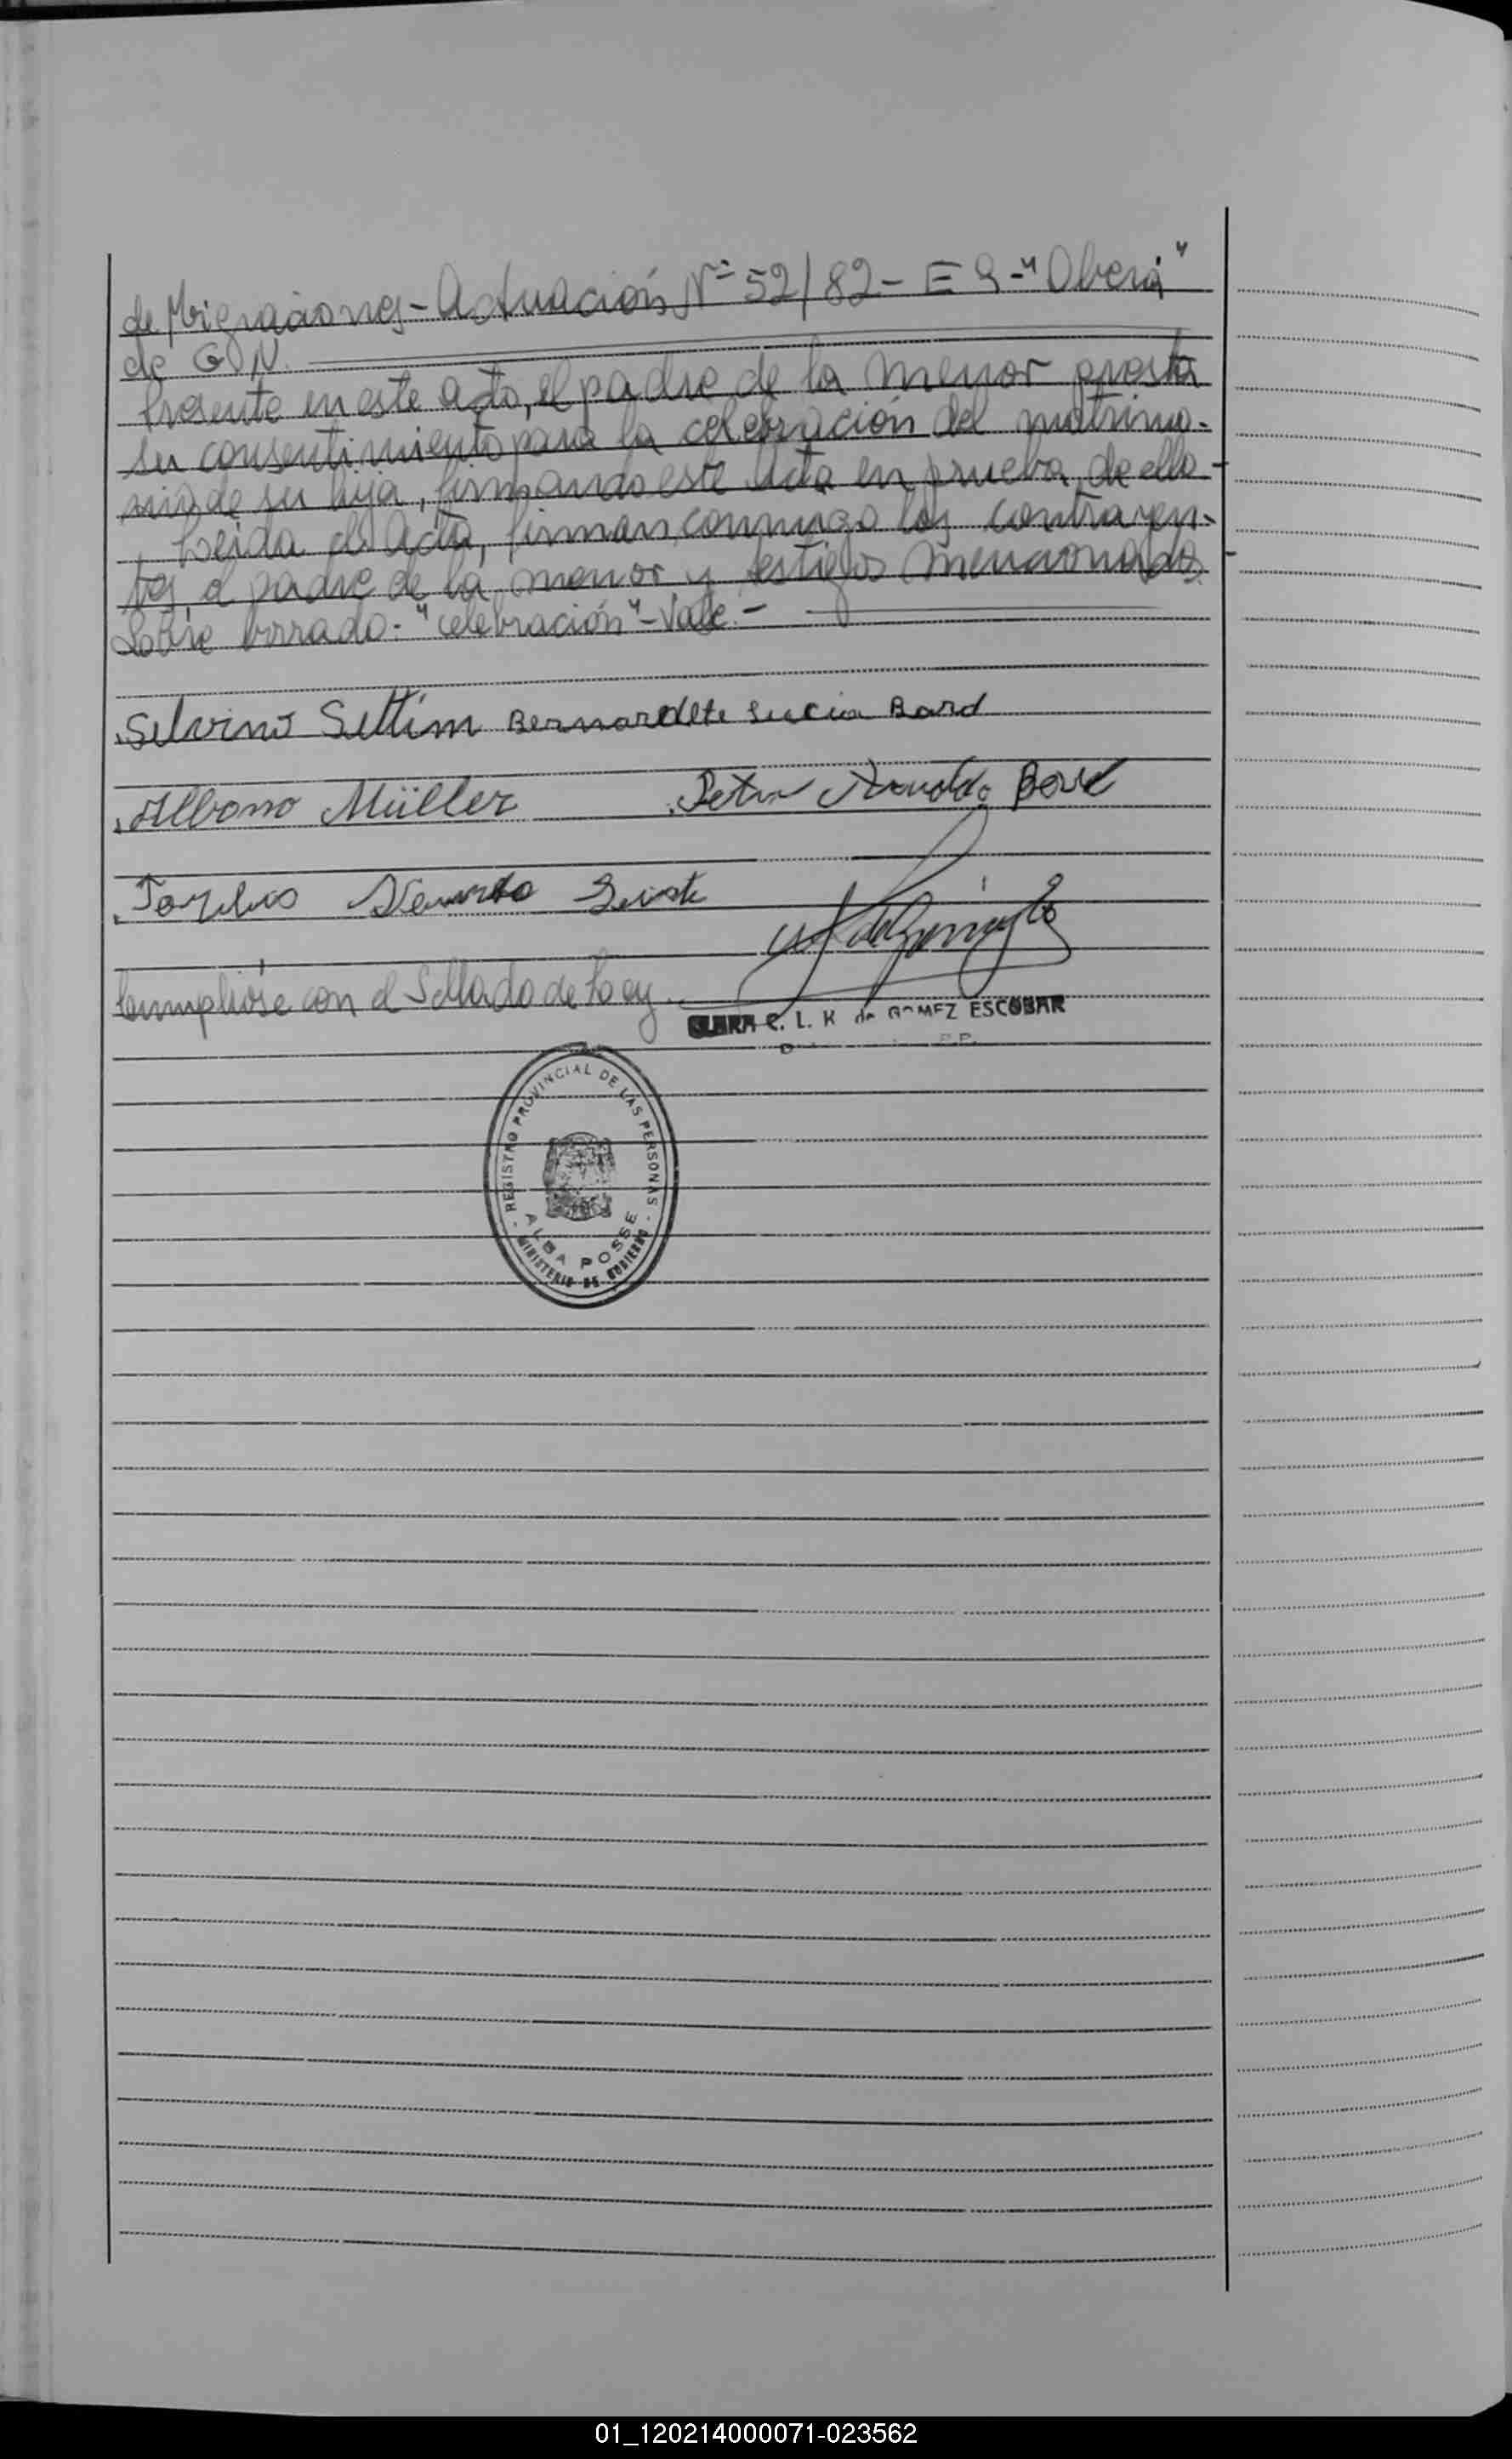 de Migraciones - Actuación Nº 52/82 - E 9 - "Oberá"
de GDN.
Presente en este acto, el padre de la menor presta
su consentimiento para la celebración del matrimo-
nio de su hija, firmando este Acta en prueba de ello -
Leida el Acta, firman conmigo los contrayen-
tes, el padre de la menor y testigos mencionados.
Sobre borrado: "celebración" - Vale. -
Silvino Settim Bernardete Lucia Bard
Albano Müller Arnoldo
Cumplióse con el Sellado de Ley. -
CLARA C. L. K de GOMEZ ESCOBAR
- REGISTRO PROVINCIAL DE LAS PERSONAS -
ALBA POSSE
MINISTERIO DE GOBIERNO
01_120214000071-023562